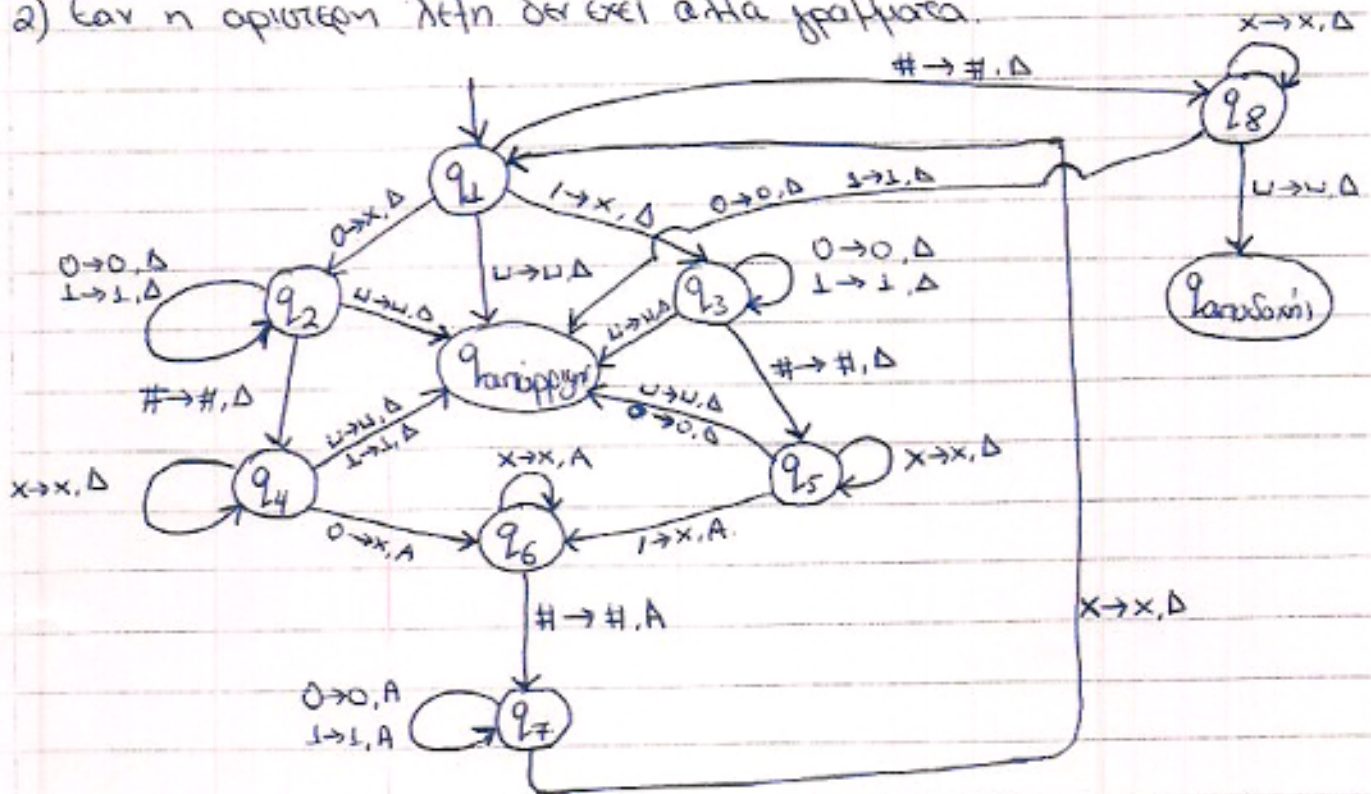 2) Εάν η αριστερή λέξη δεν έχει άλλα γράμματα.
x→x, Δ
#→#, Δ
q8
q1
0→x, Δ
1→x, Δ
0→0, Δ 1→1, Δ
⊔→⊔, Δ
⊔→⊔, Δ
0→0, Δ
1→1, Δ
q2
⊔→⊔, Δ
q3
0→0, Δ
1→1, Δ
⊔→⊔, Δ
qαποδοχής
qαπόρριψης
#→#, Δ
#→#, Δ
⊔→⊔, Δ
1→1, Δ
⊔→⊔, Δ
0→0, Δ
x→x, Δ
q4
x→x, A
q5
x→x, Δ
0→x, A
q6
1→x, A
#→#, A
x→x, Δ
0→0, A
1→1, A
q7